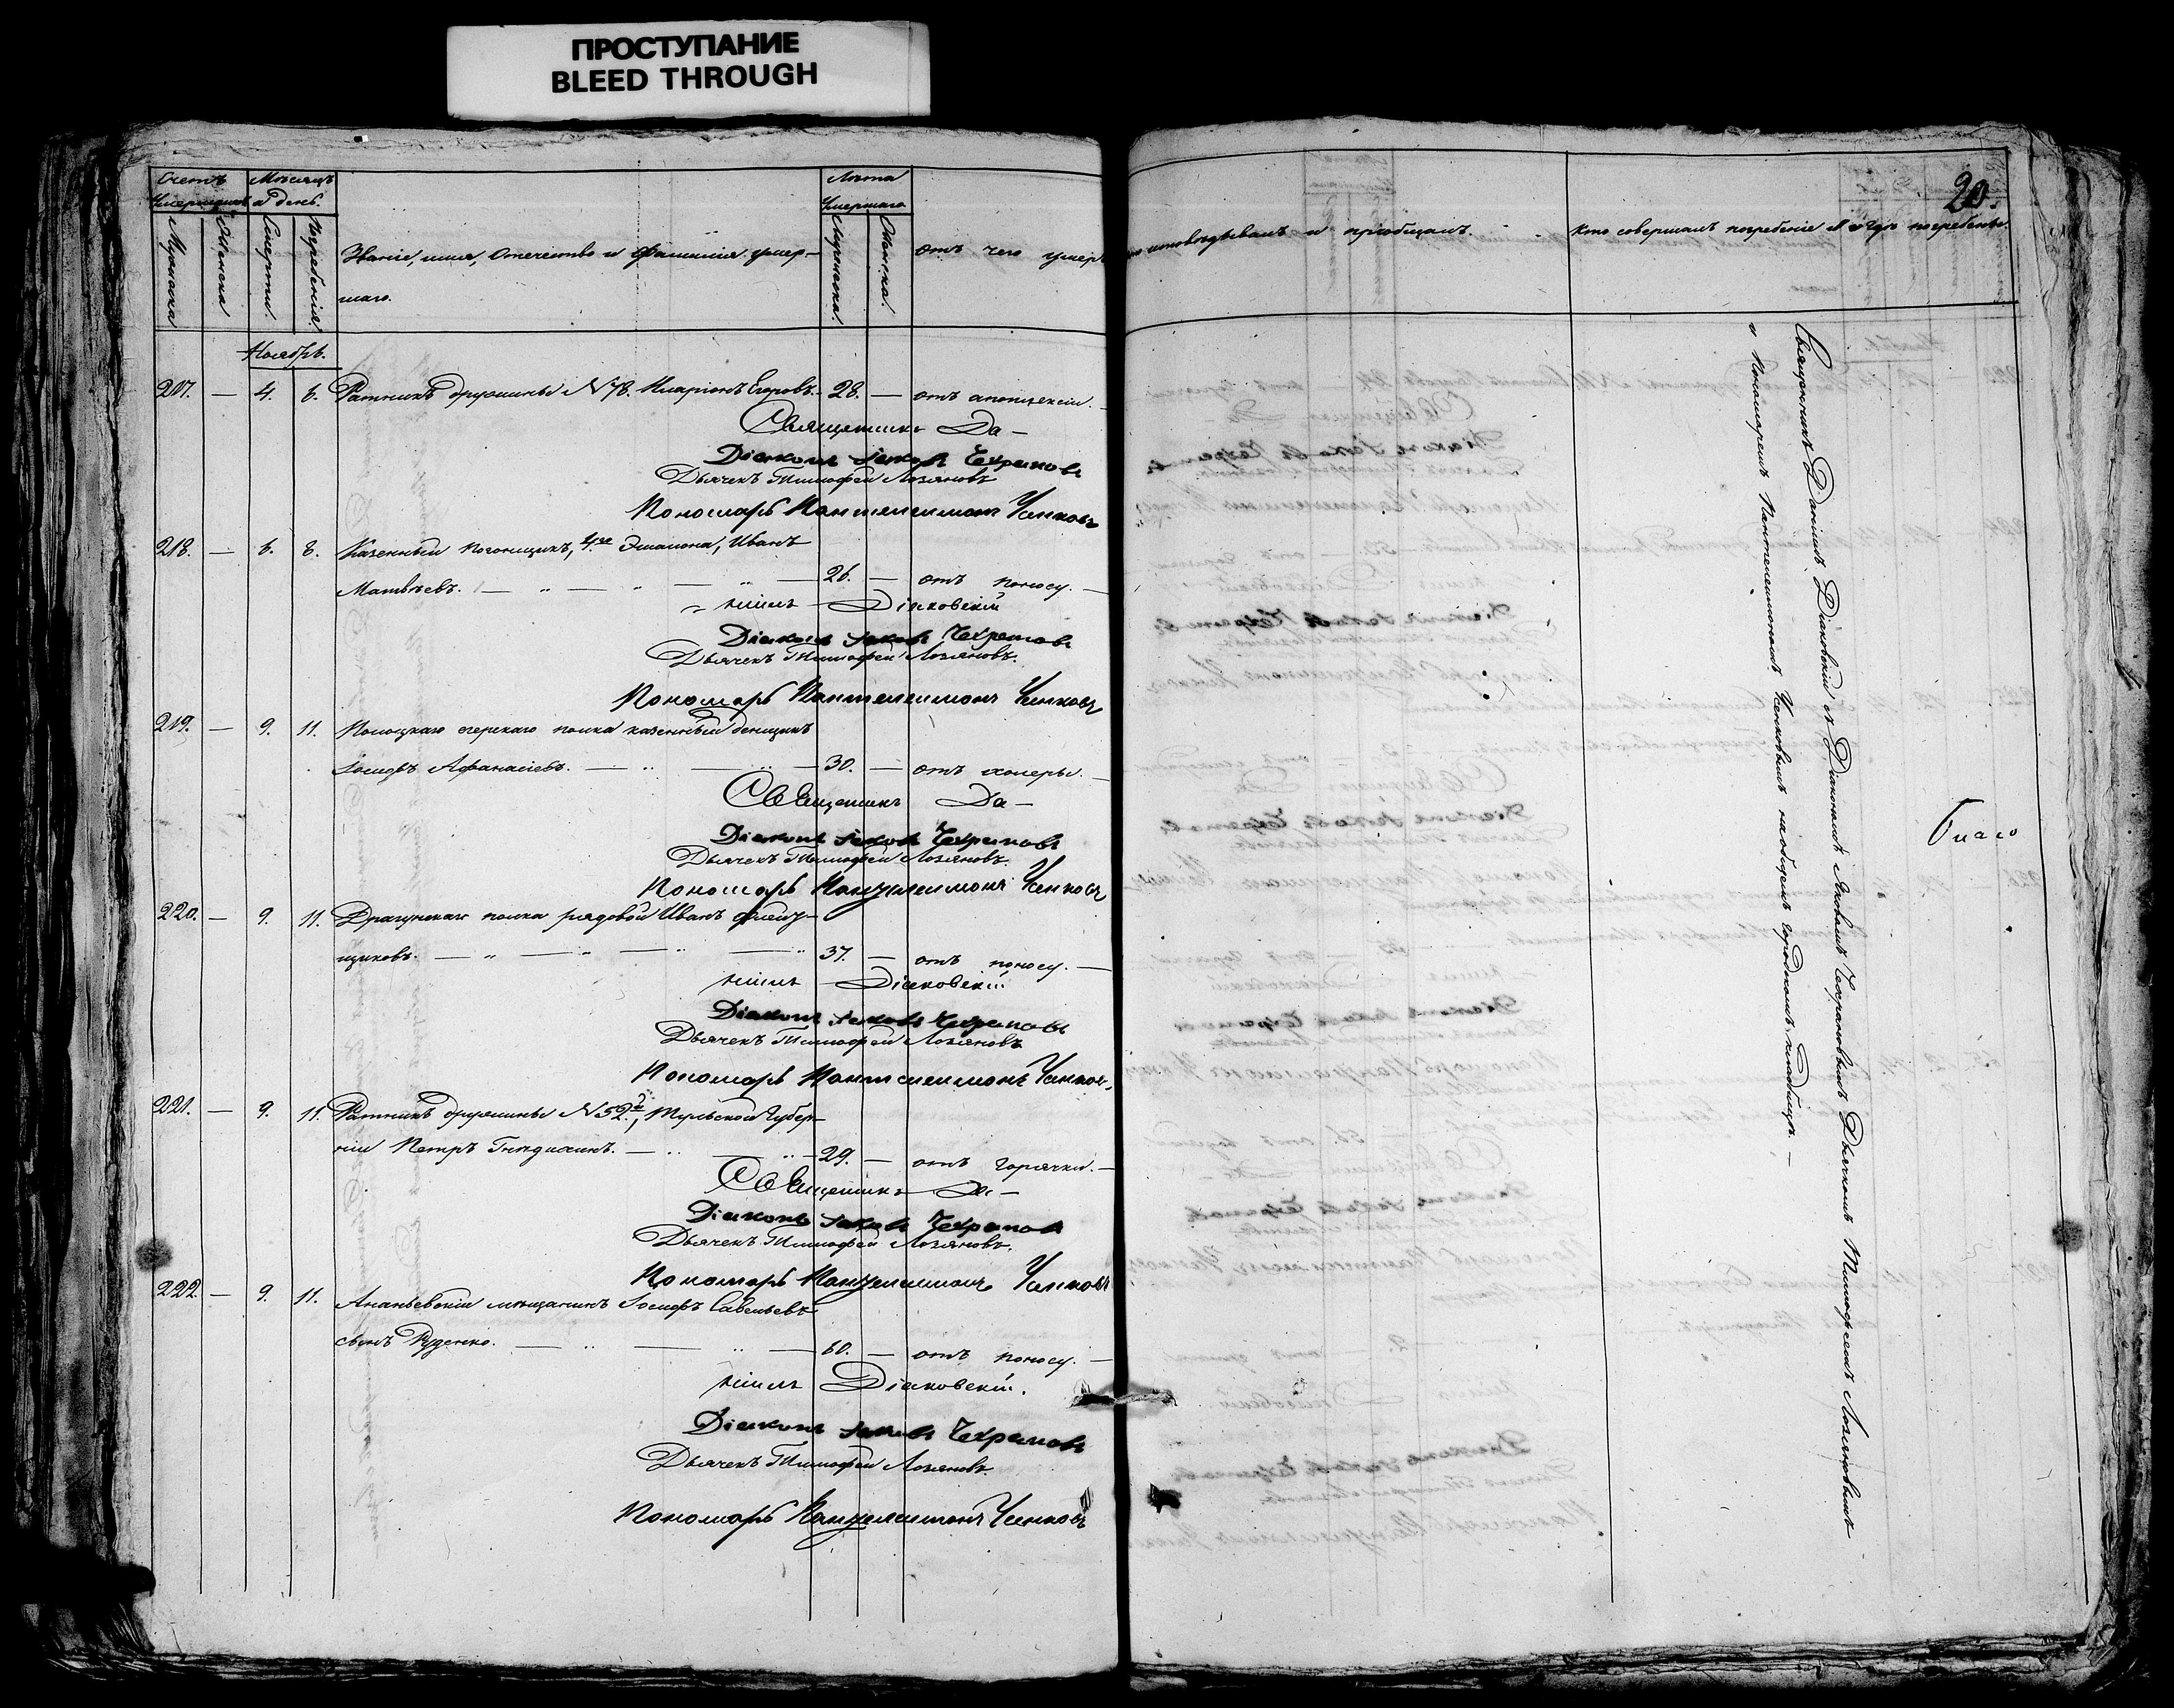 ПРОСТУПАНИЕ
BLEED THROUGH
Счетъ Умершихъ
Мужеска
Женска
Мѣсяцъ и день.
Смерти.
Погребенія.
Званіе, имя, Отечество и Фамилія умер-
шаго.
Лѣта Умершаго
Мужеска.
Женска.
отъ чего умеръ
исповѣдывалъ и пріобщалъ.
Кто совершалъ погребеніе и гдѣ погребены.
20.
Ноябрь.
217. — 4. 6. Ратникъ дружины №78. Иларіонъ Егоровъ. 28. — отъ апоплексіи.
Священникъ Да-
Діаконъ Іаковъ Чехрановъ
Дьячекъ Тимофей Лозяновъ
Пономарь Пантелеимонъ Усенковъ
218. — 6. 8. Казенный погонщикъ, 4го Эшалона, Иванъ
Матвѣевъ. — 26. — отъ поносу. —
ніилъ Діаковскій
Діаконъ Іаковъ Чехрановъ
Дьячекъ Тимофей Лозяновъ.
Пономарь Пантелеимонъ Усенковъ
219. — 9. 11. Полоцкаго егерскаго полка казенный денщикъ
Іосифъ Афанасіевъ. — 30. — отъ холеры. —
Священникъ Да-
Діаконъ Іаковъ Чехрановъ
Дьячекъ Тимофей Лозяновъ.
Пономарь Пантелеимонъ Усенковъ
220. — 9. 11. Драгунскаго полка рядовой Иванъ
щиковъ. — 37. — отъ поносу. —
ніилъ Діаковскій
Діаконъ Іаковъ Чехрановъ
Дьячекъ Тимофей Лозяновъ
Пономарь Пантелеимонъ Усенковъ
221. — 9. 11. Ратникъ дружины №52й, Тульской Губер-
ніи Петръ — 29. — отъ горячки. —
Священникъ Да-
Діаконъ Іаковъ Чехрановъ
Дьячекъ Тимофей Лозяновъ.
Пономарь Пантелеимонъ Усенковъ
222. — 9. 11. Ананьевскій мѣщанинъ Іосифъ Савельевъ
сынъ Руденко. — 60. — отъ поносу. —
ніилъ Діаковскій.
Діаконъ Іаковъ Чехрановъ
Дьячекъ Тимофей Лозяновъ.
Пономарь Пантелеимонъ Усенковъ
Священникъ Даніилъ Діаковскій съ Діакономъ Яковомъ Чехрановымъ Дьячкомъ Тимофеемъ Лозяновымъ
и Пономаремъ Пантелеимономъ Усенковымъ на общемъ городскомъ кладбищѣ. —